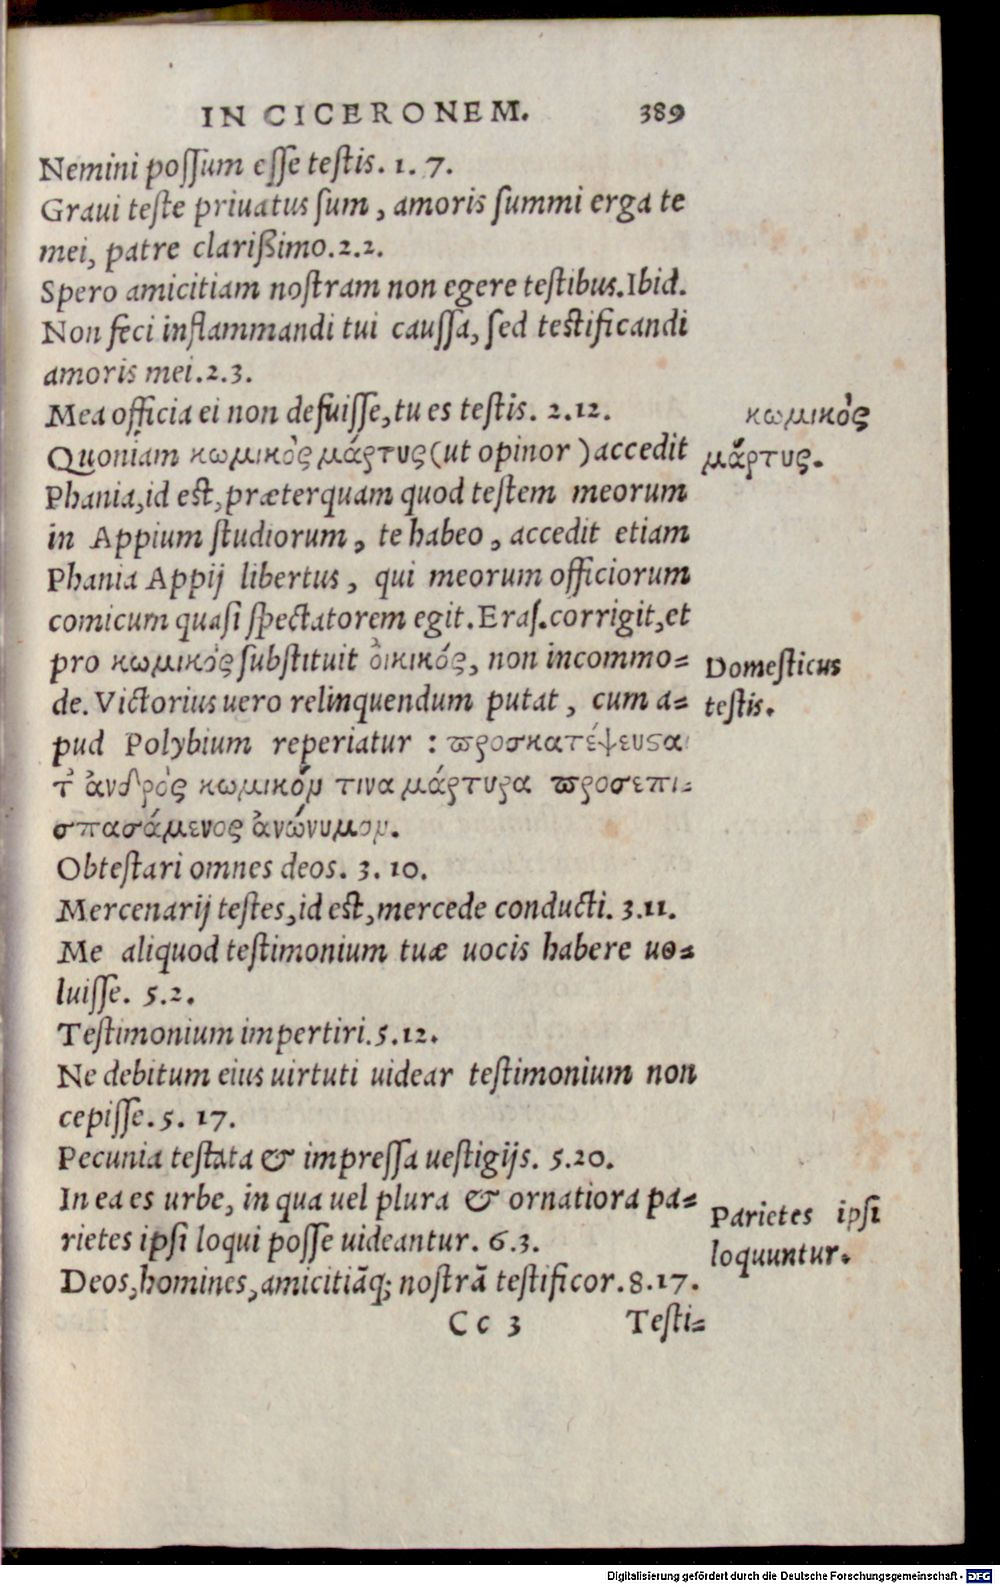 IN CICERONEM. 389
Nemini possum esse testis. 1. 7.
Graui teste priuatus sum, amoris summi erga te
mei, patre clarißimo. 2.2.
Spero amicitiam nostram non egere testibus. Ibid.
Non feci inflammandi tui caussa, sed testificandi
amoris mei. 2.3.
Mea officia ei non defuisse, tu es testis. 2.12.
Quoniam κωμικὸς μάρτυς (ut opinor) accedit
Phania, id est, præterquam quod testem meorum
in Appium studiorum, te habeo, accedit etiam
Phania Appij libertus, qui meorum officiorum
comicum quasi spectatorem egit. Eras. corrigit, et
pro κωμικός substituit οἰκικός, non incommo=
de. Victorius uero relinquendum putat, cum a=
pud Polybium reperiatur : προσκατέψευσαι
τ̓ ἀνδρὸς κωμικόν τινα μάρτυρα προσεπι=
σπασάμενος ἀνώνυμον.
Obtestari omnes deos. 3. 10.
Mercenarij testes, id est, mercede conducti. 3.11.
Me aliquod testimonium tuæ uocis habere uo=
luisse. 5.2.
Testimonium impertiri. 5.12.
Ne debitum eius uirtuti uidear testimonium non
cepisse. 5. 17.
Pecunia testata & impressa uestigijs. 5.20.
In ea es urbe, in qua uel plura & ornatiora pa=
rietes ipsi loqui posse uideantur. 6.3.
Deos, homines, amicitiãq; nostrã testificor. 8.17.
Cc 3 Testi=
κωμικὸς
μάρτυς.
Domesticus
testis.
Parietes ipsi
loquuntur.
Digitalisierung gefördert durch die Deutsche Forschungsgemeinschaft - DFG